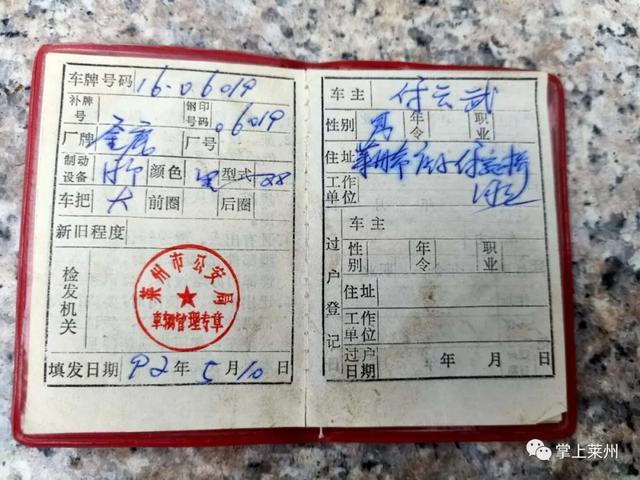 车牌号码 16-06019
补牌号 钢印号码 06019
厂牌 金鹿 厂号
制动设备 颜色 黑 型式 28
车把 大 前圈 后圈
新旧程度
检发机关
莱州市公安局
车辆管理专章
填发日期 92年5月10日
车主 付云武
性别 男 年令 职业
住址 莱州市
工作单位
过户登记
车主
性别 年令 职业
住址
工作单位
过户日期 年 月 日
掌上莱州